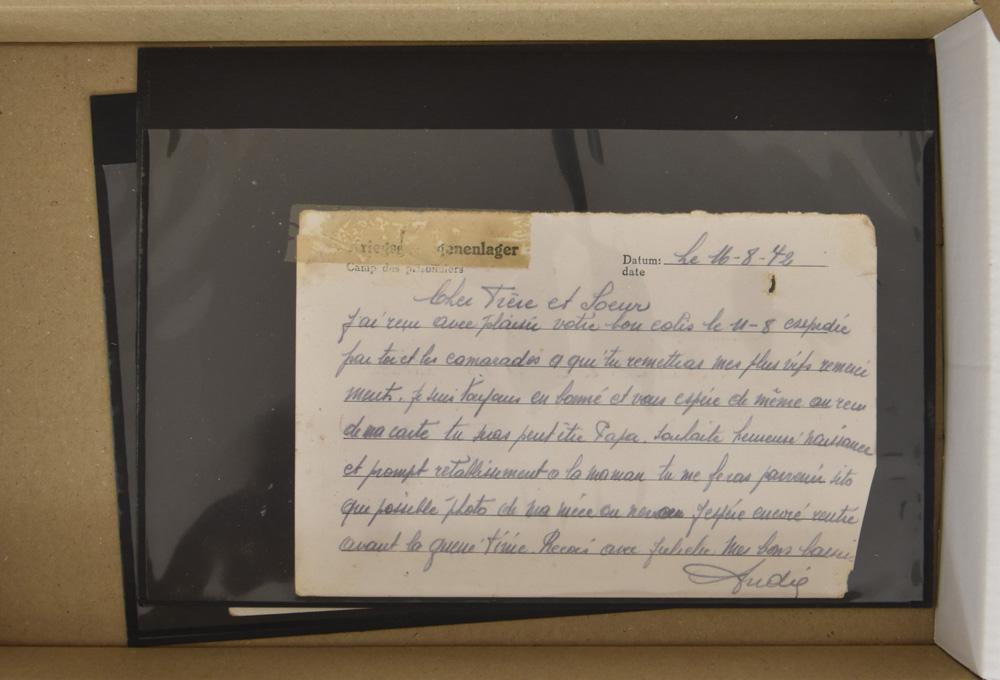 Kriegsg genenlager
Camp des prisonniers
Datum: Le 16-8-42
date
Cher Frère et Soeur
J'ai reçu avec plaisir votre bon colis le 11-8 expédié
par toi et les camarades a qui tu remettras mes plus vifs remerci
ments. Je suis toujours en bonne et vous espère de même au reçu
de ma carte tu seras peut être Papa. souhaite heureuse naissance
et prompt rétablissement a la maman tu me feras parvenir sito
que possible photo de ma nièce ou neveu J'espère encore rentré
avant la guerre finie. Recois avec Juliette Mes bons baisers
André